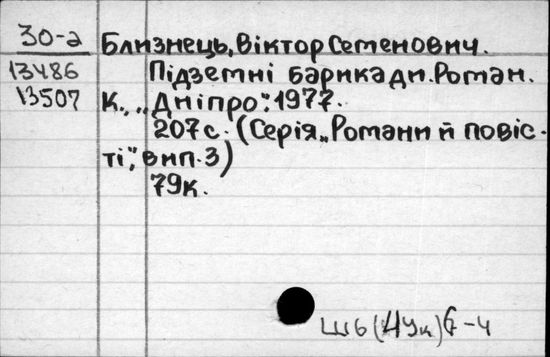 30-а Близнець, Віктор Семенович.
13486 Підземні барикади. Роман.
13507 К., „Дніпро", 1977.
207с. (Серія „Романи й повіс-
ті", вип. 3)
79к.
Ш6(4Ук)6-4